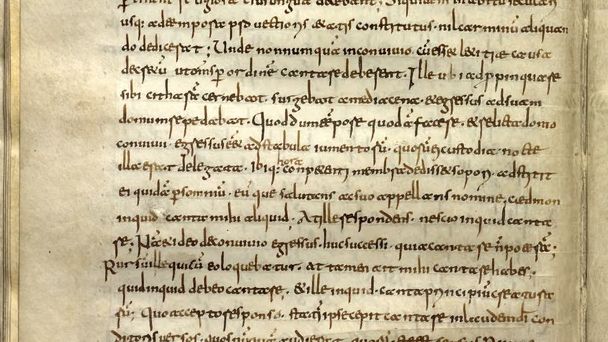 usq; ad tempora puectioris aetatis constitutus . nil carminū aliquan
do didicerat ; Unde nonnumquā in conuiuio . cū eēt laetitiae causa
decretū . ut omīs per ordinē cantare deberent . Ille ubi adppinquare
sibi citharā cernebat . surgebat a media cena . & egressus ad suam
domum repedabat . Quod dum tempore quodā faceret . & relicta domo
conuiuii egressus eēt ad stabula iumentorū . quorū ei custodia nocte
illa erat delegata . ibiq; hora conpetenti membra dedisset sopori . adstitit
ei quidā p somniū . eūque salutans ac suo appellans nomine, caedmon
inquid canta mihi aliquid . At ille respondens . nescio inquid canta
re ; Nā & ideo de conuiuio egressus . huc successi . quia cantare n̄ poterā ;
Rursū ille qui cū eo loquebatur . at tamen ait mihi cantare habes .
quid inquid debeo cantare . & ille inquid . canta principiū creatura
rū ; Quo accepto responso . statī ipse cepit cantare in laudem dī con
ditoris uersos quos nūquā audierat